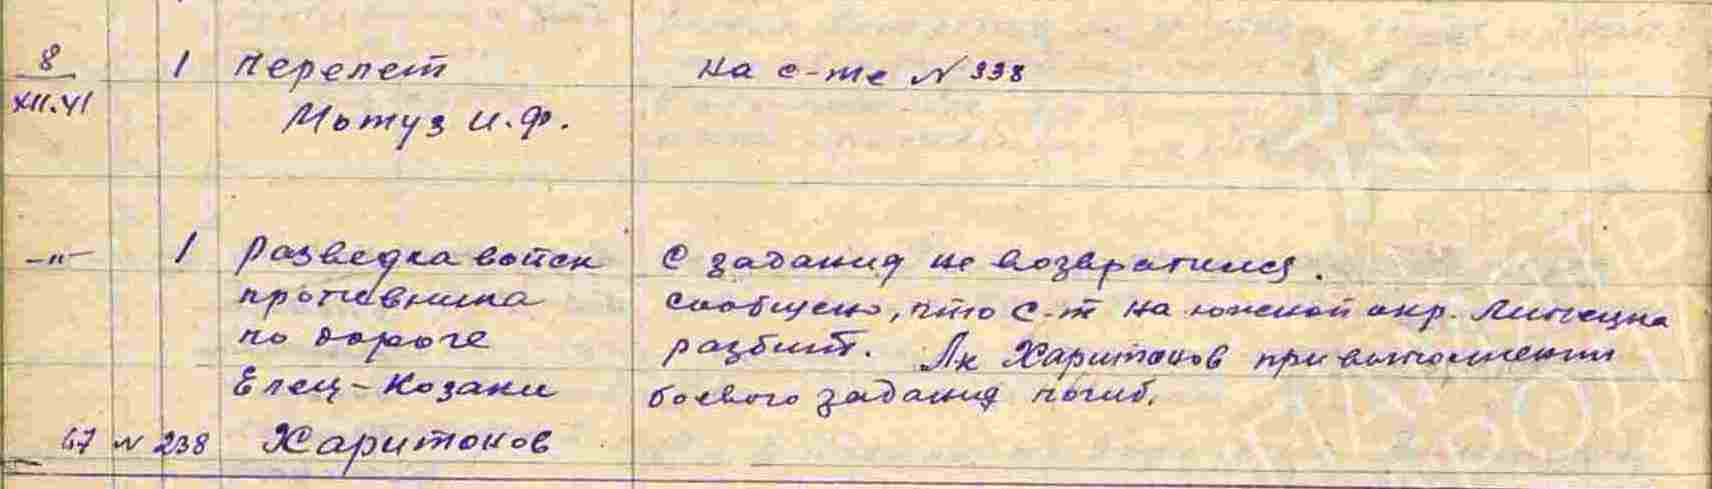 8 1 Перелет На с-те N 338
XII.41 Мотуз И.Ф.
-"- 1 Разведка войск С задания не возвратился.
противника сообщено, что с-т на южной окр. Липецка
по дороге разбит. Лк Харитонов при выполнении
Елец-Козаки боевого задания погиб.
67 N 238 Харитонов